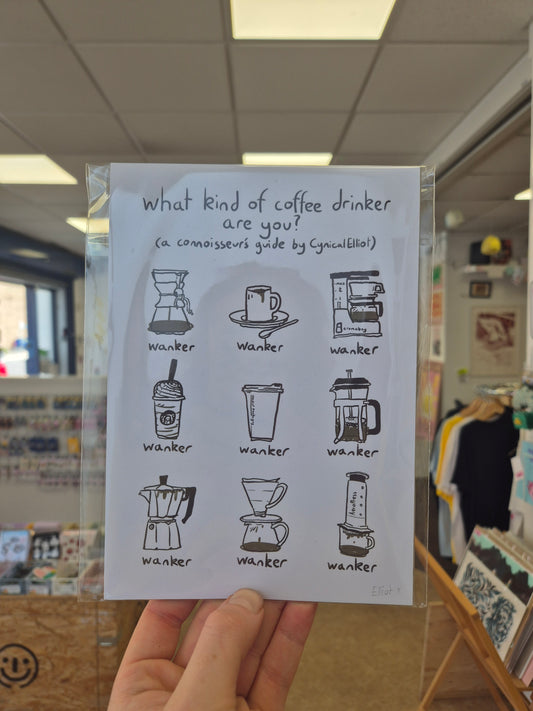 what kind of coffee drinker
are you?
(a connoisseur's guide by CynicalElliot)
wanker wanker wanker
wanker wanker wanker
wanker wanker wanker
Elliot x